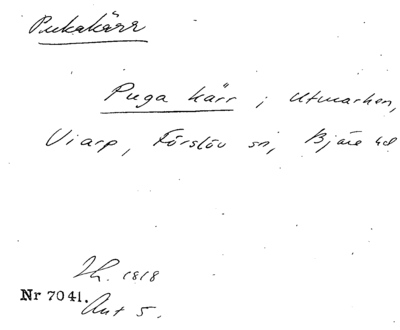 Pukakärr
Puga kärr i Utmarken,
Viarp, Förslöv sn, Bjäre hd
Lh. 1818
Nr 7041.
Akt 5.